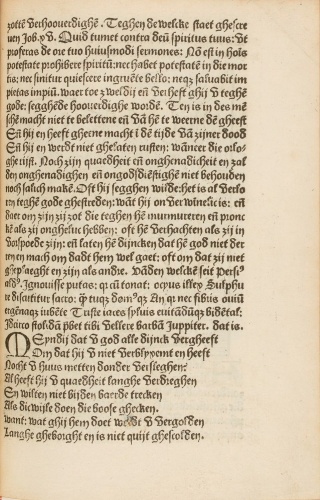 zottē verhoouerdighē. Teghen de welcke staet ghescre
uen Job. xv. Quid tumet contra deū spiritus tuus: vt
proferas de ore tuo huiusmodi sermones: Nō est in hoīs
potestate prohibere spiritū: nec habet potestatē in die mor
tis: nec sinitur quiescere ingruēte bello: neqȝ saluabit im
pietas impiū. waer toe z weldij eñ verheft ghij v teghē
gode: segghēde hoouerdighe wordē. Ten is in des mē
schē macht niet te belettene eñ vā hē te weerne dē gheest
Eñ hij en heeft gheene macht ī dē tijde vā zijner dood
Eñ hij en werdt niet ghelaten rusten: wāneer die orlo-
ghe rijst. Noch zijn quaedheit eñ onghenadicheit en zal
den onghenadighen eñ ongodsdiēstighē niet behouden
noch salich makē. Oft hij segghen wilde: het is al verlo
rn teghē gode ghestredēn: wāt hij onverwinlic is: eñ
daer om zijn zij zot die teghen hē murmureren eñ pronc
kē als zij ongheluc hebben: oft hē verhachten als zij in
vospoede zijn: eñ laten hē dijncken dat hē god niet der
ren en mach om dadt hem wel gaet: oft om dat zij niet
gheplaeght en zijn als andre. Vādēn welckē seit Persi⁹
aldꝰ. Ignouisse putas: qꝛ cū tonat: ocyus illex Sulphu
re discutitur sacro: qꝫ tuqȝ domꝰqȝ An qꝛ nec fibris ouiū
ergēnaqȝ iubēte Triste iaces syluis euitādūqȝ bidētal:
Idcirco stolidā p̄bet tibi vellere barbā Juppiter. dat is.
MEyndij dat v god alle dijnck vergheeft
Om dat hij v niet verblyxemt en heeft
Nocht v huus metten donder versleghen?
Al heeft hij v quaedheit langhe verdreghen
Sy wilten niet bij den baerde trecken
Als die wijse doen die boose ghecken.
want: wat ghij hem doet werdt v vergolden
Langhe gheborght en is niet quijt ghescolden.